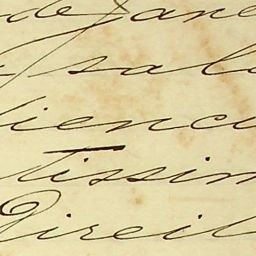 de Jane
sala
ienci
tissim
Direit